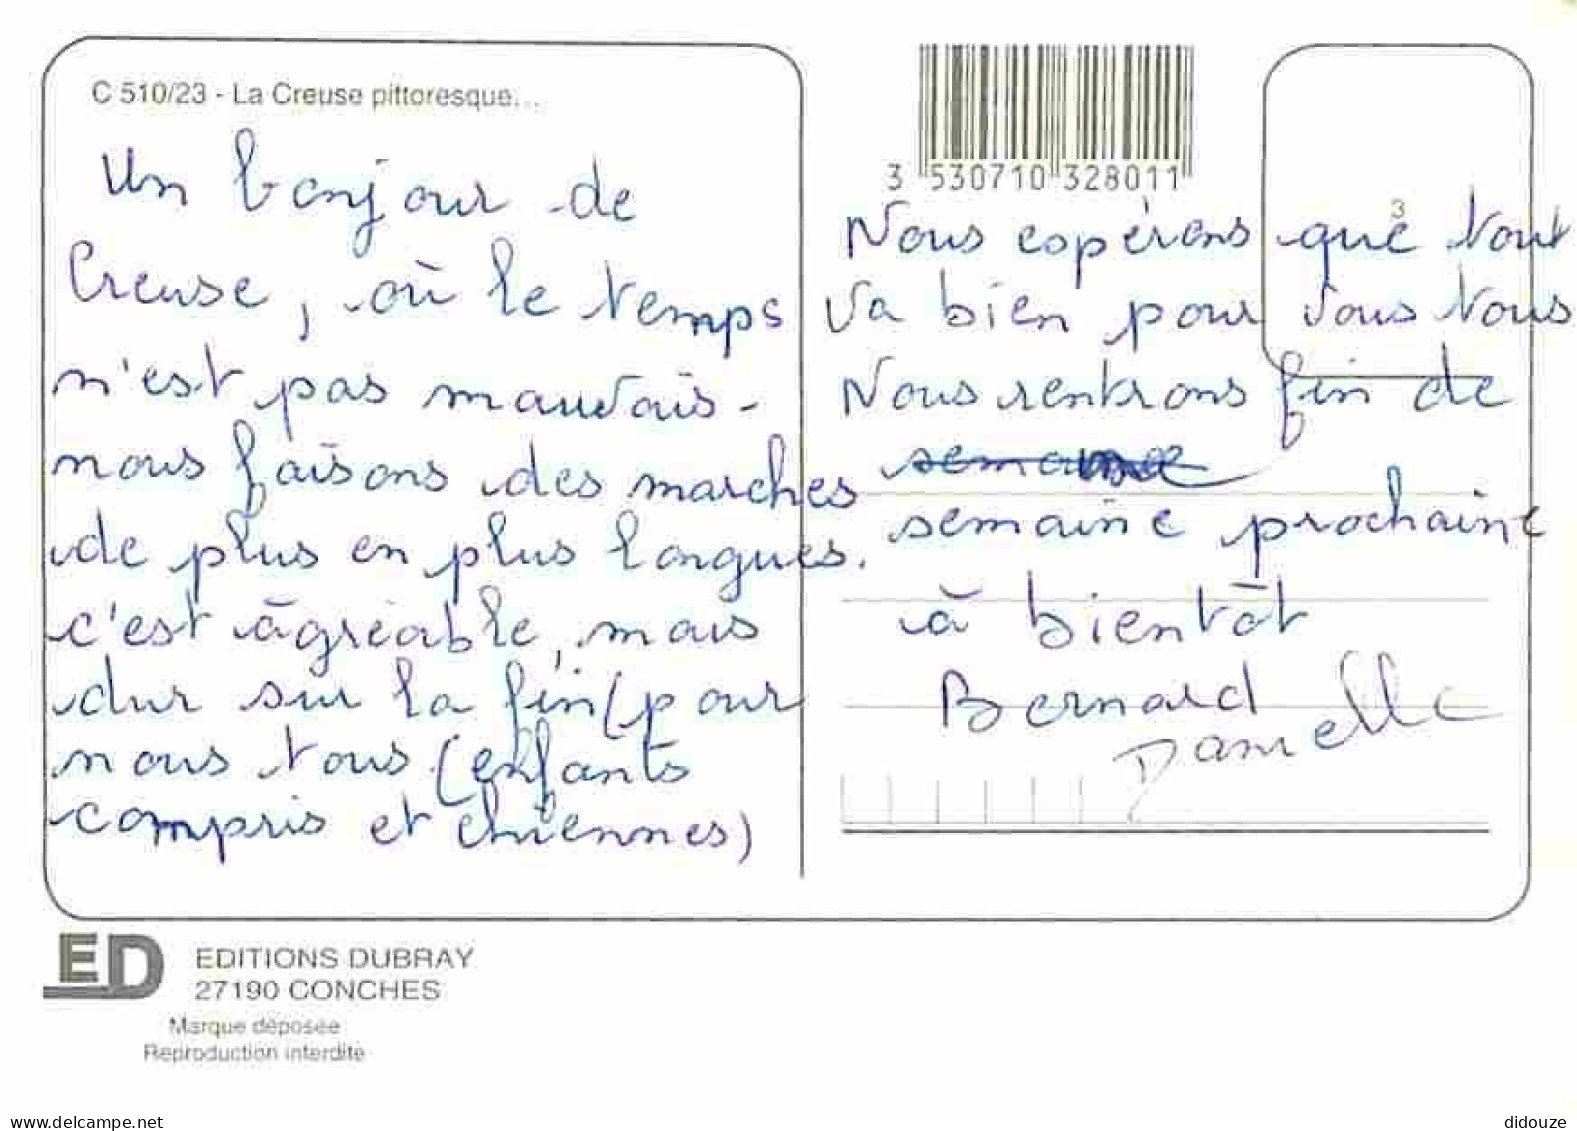 C 510/23 - La Creuse pittoresque...
Un bonjour de
Creuse, où le temps
n'est pas mauvais -
nous faisons des marches
de plus en plus longues.
c'est agréable, mais
dur sur la fin (pour
nous tous (enfants
compris et chiennes)
3 530710 328011
3
Nous espérons que tout
va bien pour vous tous
Nous rentrons fin de
semaine
semaine prochaine
à bientôt
Bernard
Danielle
ED
EDITIONS DUBRAY
27190 CONCHES
Marque déposée
Reproduction interdite
www.delcampe.net
didouze